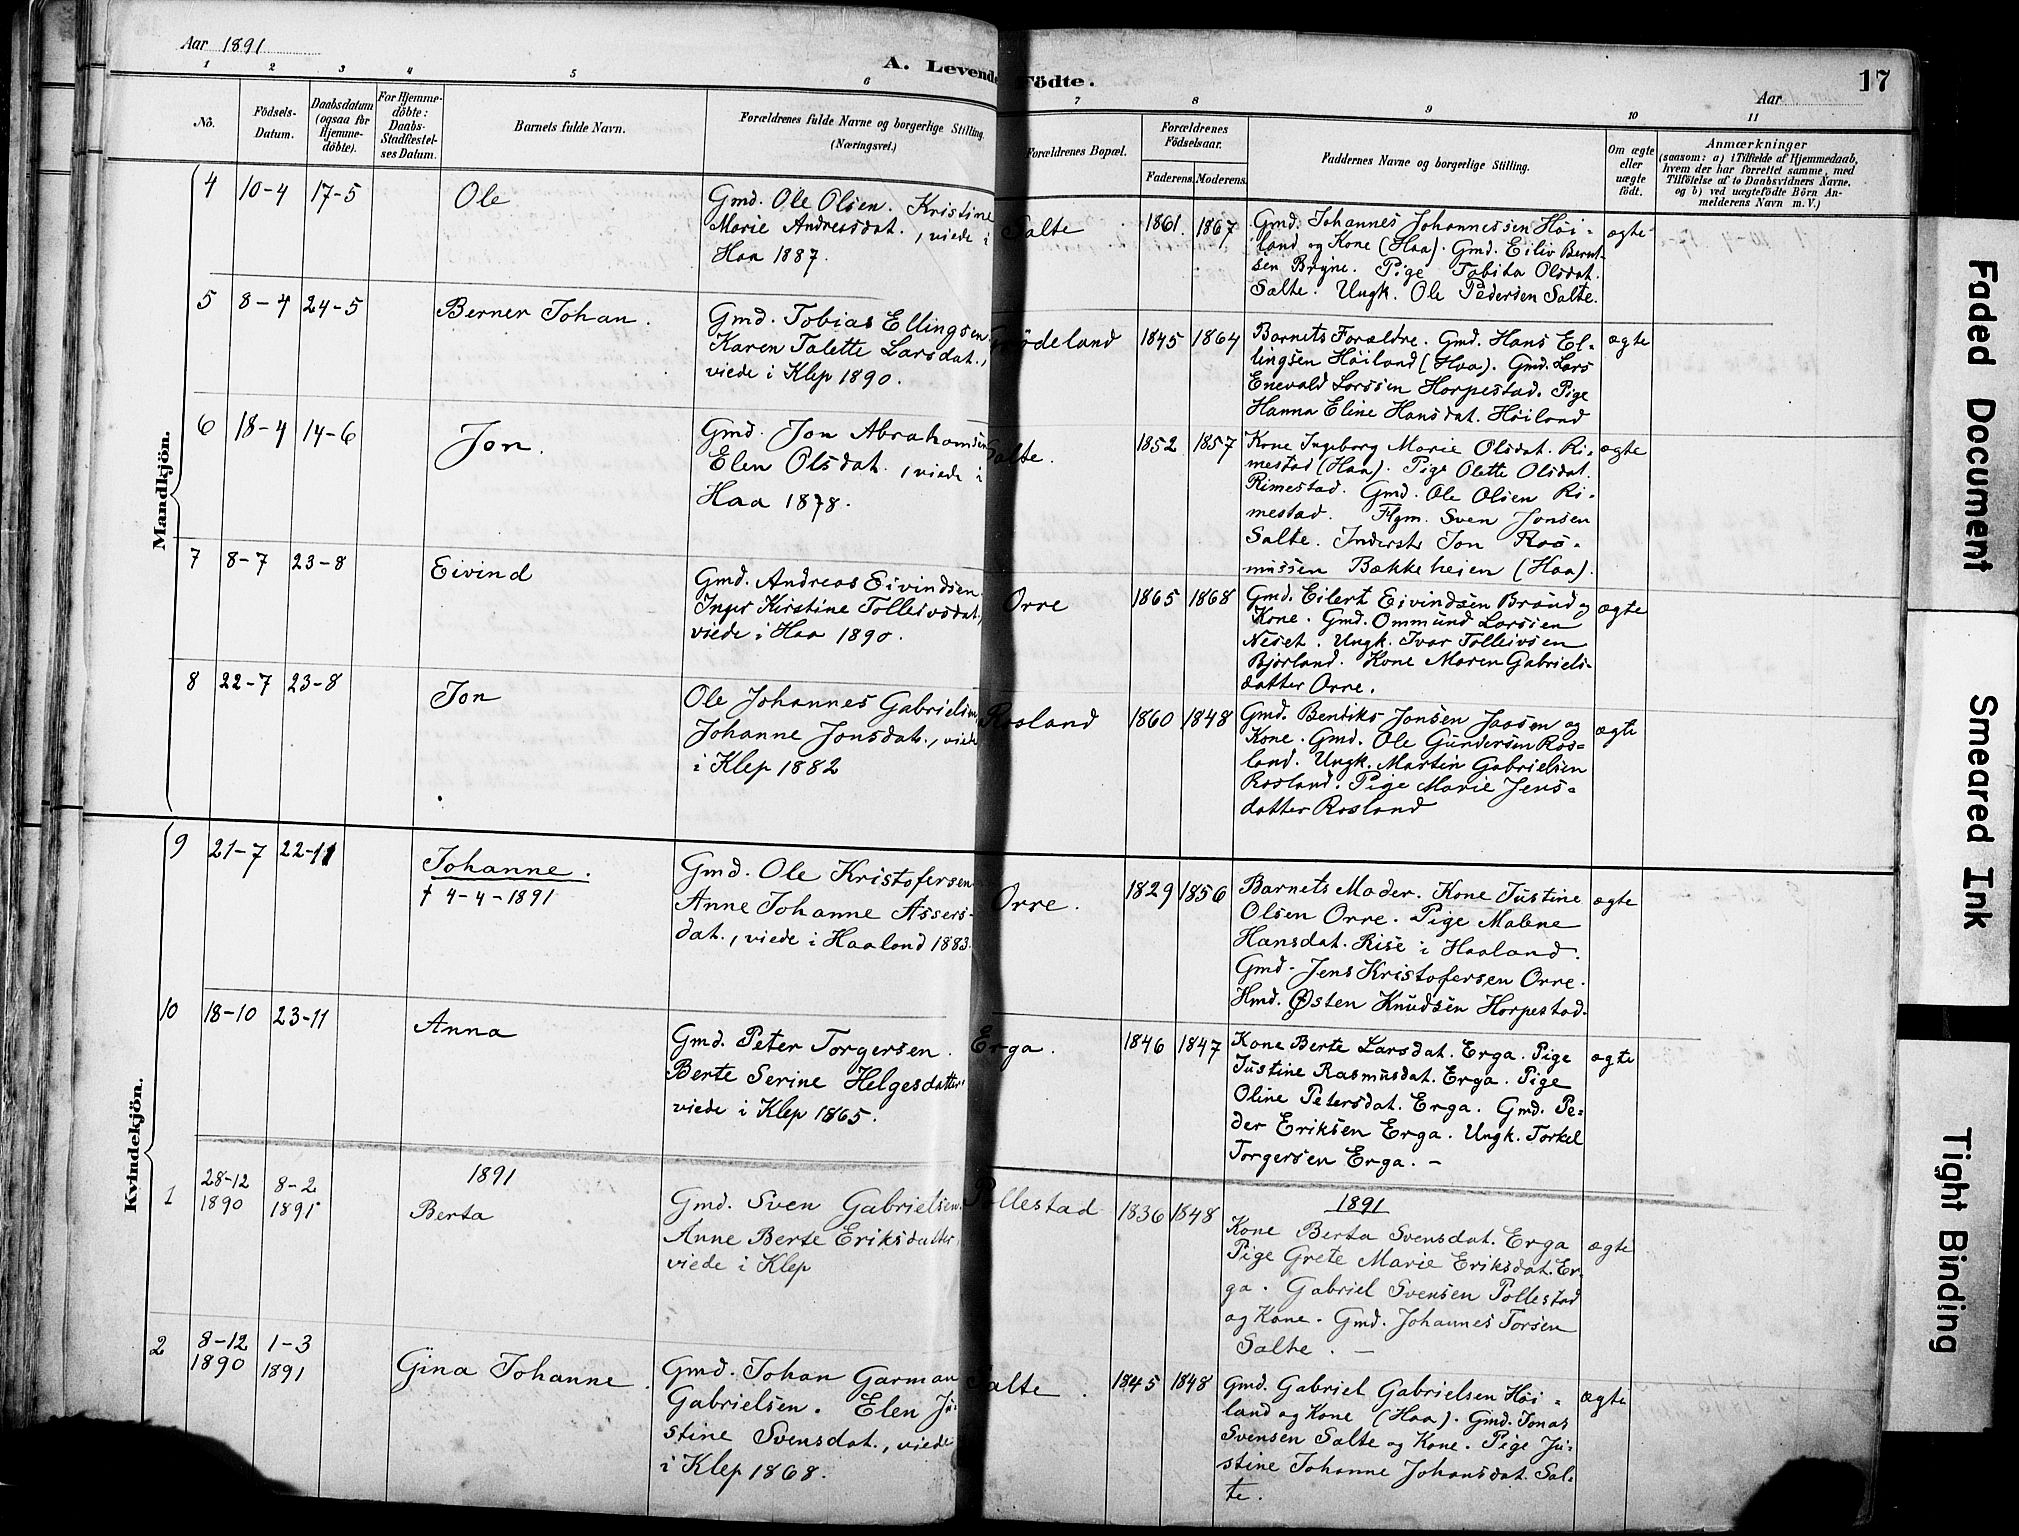 Aar 1891
A. Levende Födte.
17
Aar
1 2 3 4 5 6 7 8 9 10 11
Nö.
Födsels-
Datum.
Daabsdatum
(ogsaa for
Hjemme-
döbte).
For Hjemme-
döbte:
Daabs-
Stadfæstel-
ses Datum.
Barnets fulde Navn.
Forældrenes fulde Navne og borgerlige Stilling.
(Næringsvei.)
Forældrenes Bopæl.
Forældrenes
Födselsaar.
Faderens. Moderens.
Faddernes Navne og borgerlige Stilling.
Om ægte
eller
uægte
födt.
Anmærkninger
(saasom: a) i Tilfælde af Hjemmedaab,
hvem der har forrettet samme, med
Tilföielse af to Daabsvidners Navne,
og b) ved uægtefödte Börn An-
melderens Navn m. V.)
Mandkjön.
4 10-4 17-5 Ole
Gmd. Ole Olsen. Kristine
Marie Andreasdat., viede i
Haa 1887.
Salte 1861. 1867
Gmd. Johannes Johannessen Höi-
land og Kone (Haa). Gmd. Eiliv Bernt-
sen Bryne. Pige Tobita Olsdat.
Salte. Ungk. Ole Pedersen Salte.
ægte
5 8-4 24-5 Berner Johan.
Gmd. Tobias Ellingsen
Karen Talette Larsdat.,
viede i Klep 1890.
1845 1864
Barnets Forældre. Gmd. Hans El-
lingsen Höiland (Haa). Gmd. Lars
Enevald Larssen Horpestad. Pige
Hanna Eline Hansdat. Höiland
ægte
6 18-4 14-6 Jon.
Gmd. Jon Abrahamsen
Elen Olsdat., viede i
Haa 1878.
Salte. 1852 1857
Kone Ingeborg Marie Olsdat. Ri-
mestad (Haa). Pige Olette Olsdat.
Rimestad. Gmd. Ole Olsen Ri-
mestad. Flgm. Sven Jonsen
Salte. Inderst Jon Ras-
mussen Bækkeheien (Haa).
ægte
7 8-7 23-8 Eivind
Gmd. Andreas Eivindsen
Inger Kirstine Tolleivsdat,
viede i Haa 1890.
Orre 1865 1868
Gmd. Eilert Eivindsen Braud og
Kone. Gmd. Ommund Larssen
Neset. Ungk. Ivar Tolleivsen
Bjorland. Kone Maren Gabriels-
datter Orre.
ægte
8 22-7 23-8 Jon
Ole Johannes Gabrielsen
Johanne Jonsdat., viede
i Klep 1882
Rosland 1860 1848
Gmd. Bendiks Jonsen Jaasen og
Kone. Gmd. Ole Gundersen Ros-
land. Ungk. Martin Gabrielsen
Rosland. Pige Marie Jens-
datter Rosland
ægte
Kvindekjön.
9 21-7 22-11 Johanne.
† 4-4-1891
Gmd. Ole Kristofersen
Anne Johanne Assers-
dat., viede i Haaland 1883.
Orre. 1829 1856
Barnets Moder. Kone Justine
Olsen Orre. Pige Malene
Hansdat. Rise i Haaland.
Gmd. Jens Kristofersen Orre.
Hmd. Østen Knudsen Horpestad.
ægte
10 18-10 23-11 Anna
Gmd. Peter Torgersen.
Berte Serine Helgesdatter
viede i Klep 1865.
Erga. 1846 1847
Kone Berte Larsdat. Erga. Pige
Justine Rasmusdat. Erga. Pige
Oline Petersdat. Erga. Gmd. Pe-
der Eriksen Erga. Ungk. Torkel
Torgersen Erga. —
ægte
1891
1891
1 28-12 1890 8-2 1891 Berta
Gmd. Sven Gabrielsen.
Anne Berte Eriksdatter,
viede i Klep
Pollestad 1836 1848
Kone Berta Svensdat. Erga
Pige Grete Marie Eriksdat. Er-
ga. Gabriel Svensen Pollestad
og Kone. Gmd. Johannes Torsen
Salte. —
ægte
2 8-12 1890 1-3 1891 Gina Johanne.
Gmd. Johan Garman
Gabrielsen. Elen Ju-
stine Svensdat., viede
i Klep 1868.
Salte. 1845 1848
Gmd. Gabriel Gabrielsen Höi-
land og Kone (Haa). Gmd. Jonas
Svensen Salte og Kone. Pige Ju-
stine Johanne Johansdat. Sal-
te.
ægte
Faded Document
Smeared Ink
Tight Binding